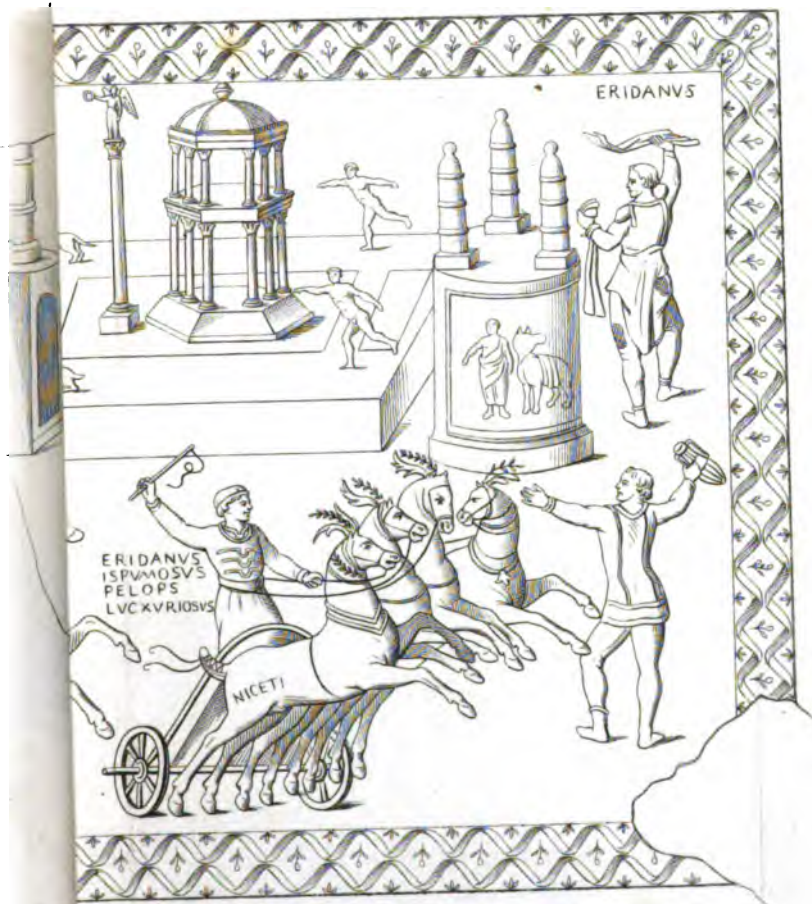 ERIDANVS
ERIDANVS
ISPVMOSVS
PELOPS
LVCXVRIOSVS
NICETI